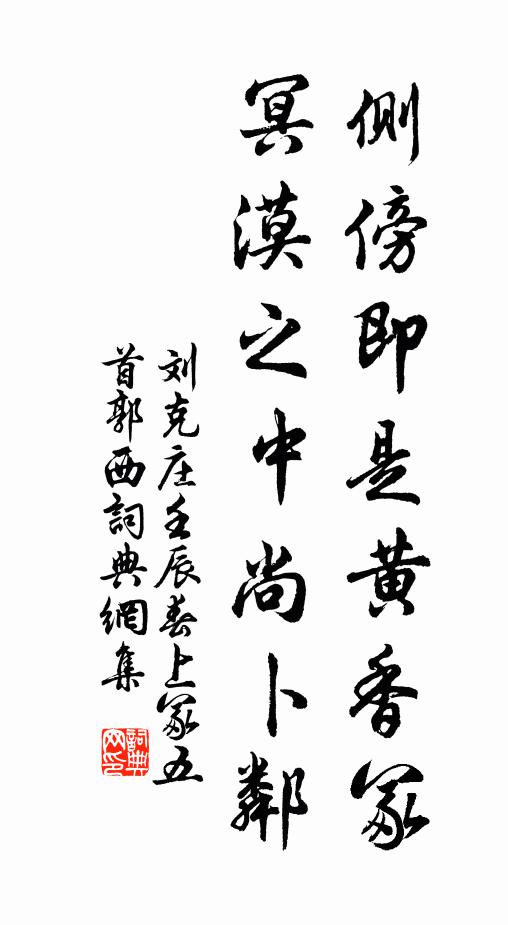 側傍即是黄香冢
冥漠之中尚卜鄰
刘克庄壬辰春上冢五
首郭西詞典網集
詞典
网印